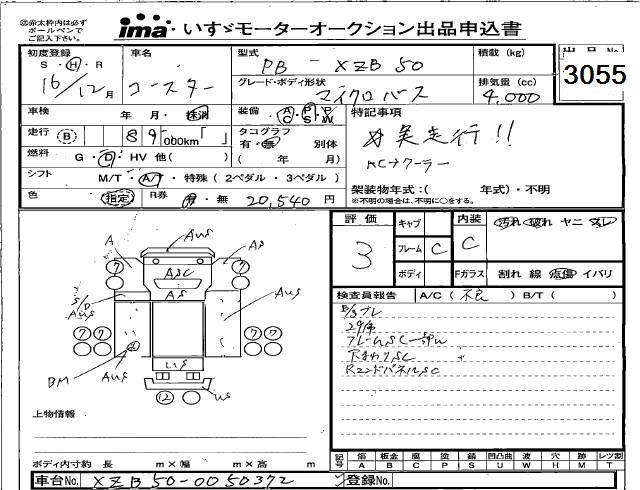 ㊟赤太枠内は必ず
ボールペンで
ご記入下さい。
ima・いすゞモーターオークション出品申込書
初度登録
S・H・R
16/12月
車名
コースター
型式
PB-XZB50
グレード・ボディ形状
マイクロバス
積載 (kg)
排気量 (cc)
4,000
出品No
3055
車検 年 月・抹消
装備 AC PS PW
特記事項
実走行!!
走行 B 89,000km「 」
タコグラフ
有・無 別体
( 年 月)
燃料 G・D・HV 他( )
シフト M/T・A/T・特殊(2ペダル・3ペダル)
色 (指定) R券 有・無 20,540円
架装物年式:( 年式)・不明
※不明の場合は、不明に○をする。
評価
3
キャブ
フレーム C
ボディ
内装 C
汚れ 破れ ヤニ スレ
Fガラス 割れ 線 痕傷 イバリ
検査員報告 A/C(不良) B/T( )
下まわりSC
A
AUS
AS
ASC
AS
S/D
AUS
AUS
BM
AUS
いS
US
7 7 7 7 7 7
12
上物情報
ボディ内寸約 長 m×幅 m×高 m
記号 傷 板金 腐 塗 錆 凹凸曲 波 穴 跡 レツ割
A B C P S U W H M T
車台No. XZB50-0050372
登録No.